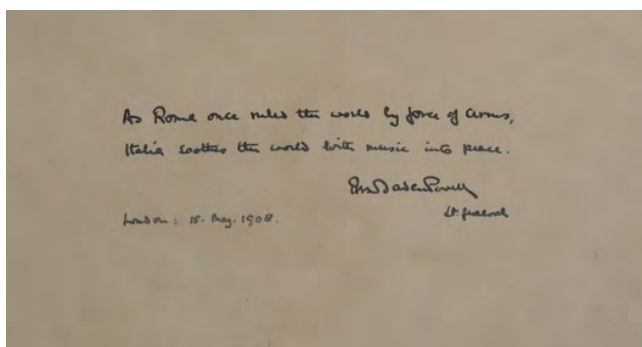 As Roma once ruled the world by force of arms,
Italia soothes the world with music into peace.
Baden Powell
Lt. General
London: 15. May. 1908.